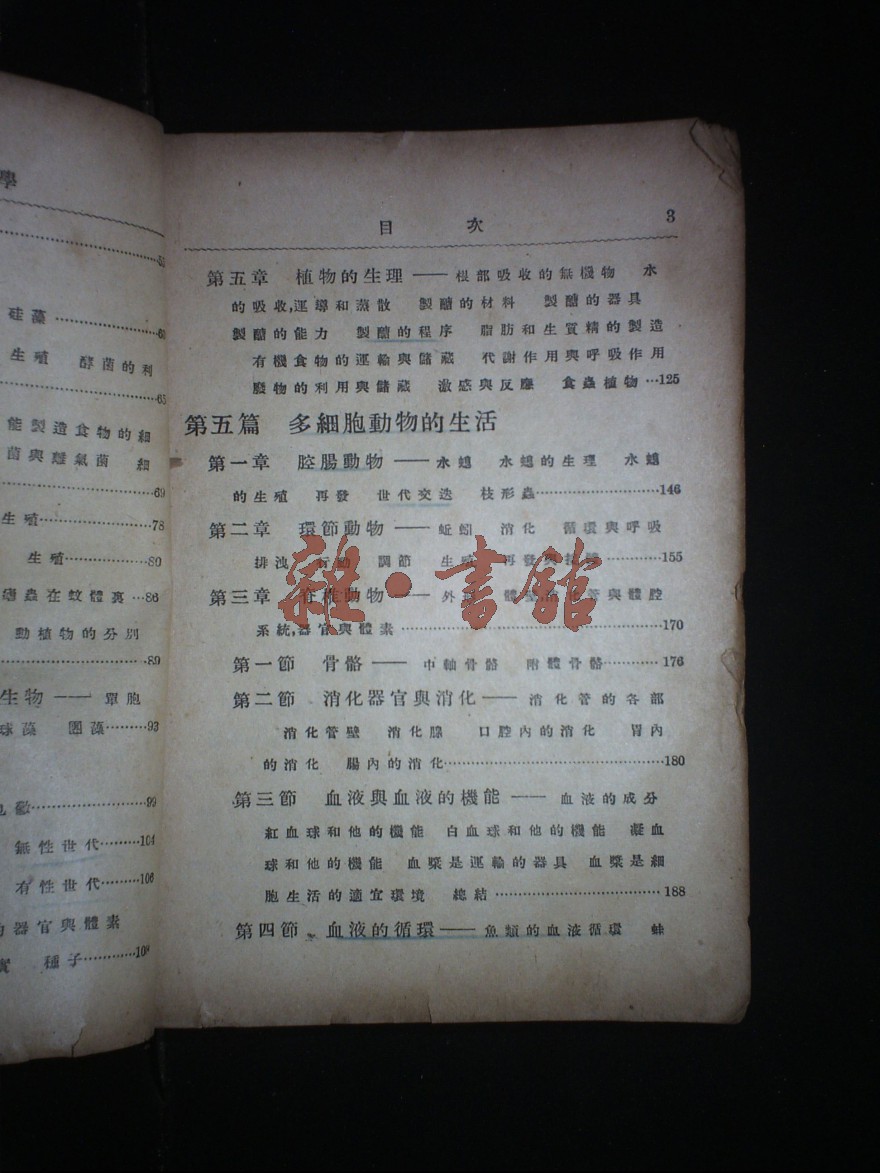 學
硅藻
生殖 酵菌的利
65
能製造食物的細
菌與離氣菌 細
69
生殖 78
生殖 80
瘧蟲在蚊體裏 86
動植物的分別
89
生物——單胞
球藻 團藻 93
99
無性世代 104
有性世代 106
的器官與體素
種子
目次 3
第五章 植物的生理——根部吸收的無機物 水
的吸收,運導和蒸散 製醣的材料 製醣的器具
製醣的能力 製醣的程序 脂肪和生質精的製造
有機食物的運輸與儲藏 代謝作用與呼吸作用
廢物的利用與儲藏 激感與反應 食蟲植物 125
第五篇 多細胞動物的生活
第一章 腔腸動物——水螅 水螅的生理 水螅
的生殖 再發 世代交迭 枝形蟲 146
第二章 環節動物——蚯蚓 消化 循環與呼吸
排洩 行動 調節 生殖 再發與 155
第三章 脊椎動物——外 體 管與體腔
系統,器官與體素 170
第一節 骨骼——中軸骨骼 附體骨骼 176
第二節 消化器官與消化——消化管的各部
消化管壁 消化腺 口腔內的消化 胃內
的消化 腸內的消化 180
第三節 血液與血液的機能——血液的成分
紅血球和他的機能 白血球和他的機能 凝血
球和他的機能 血漿是運輸的器具 血漿是細
胞生活的適宜環境 總結 188
第四節 血液的循環——魚類的血液循環 蛙
雜·書館